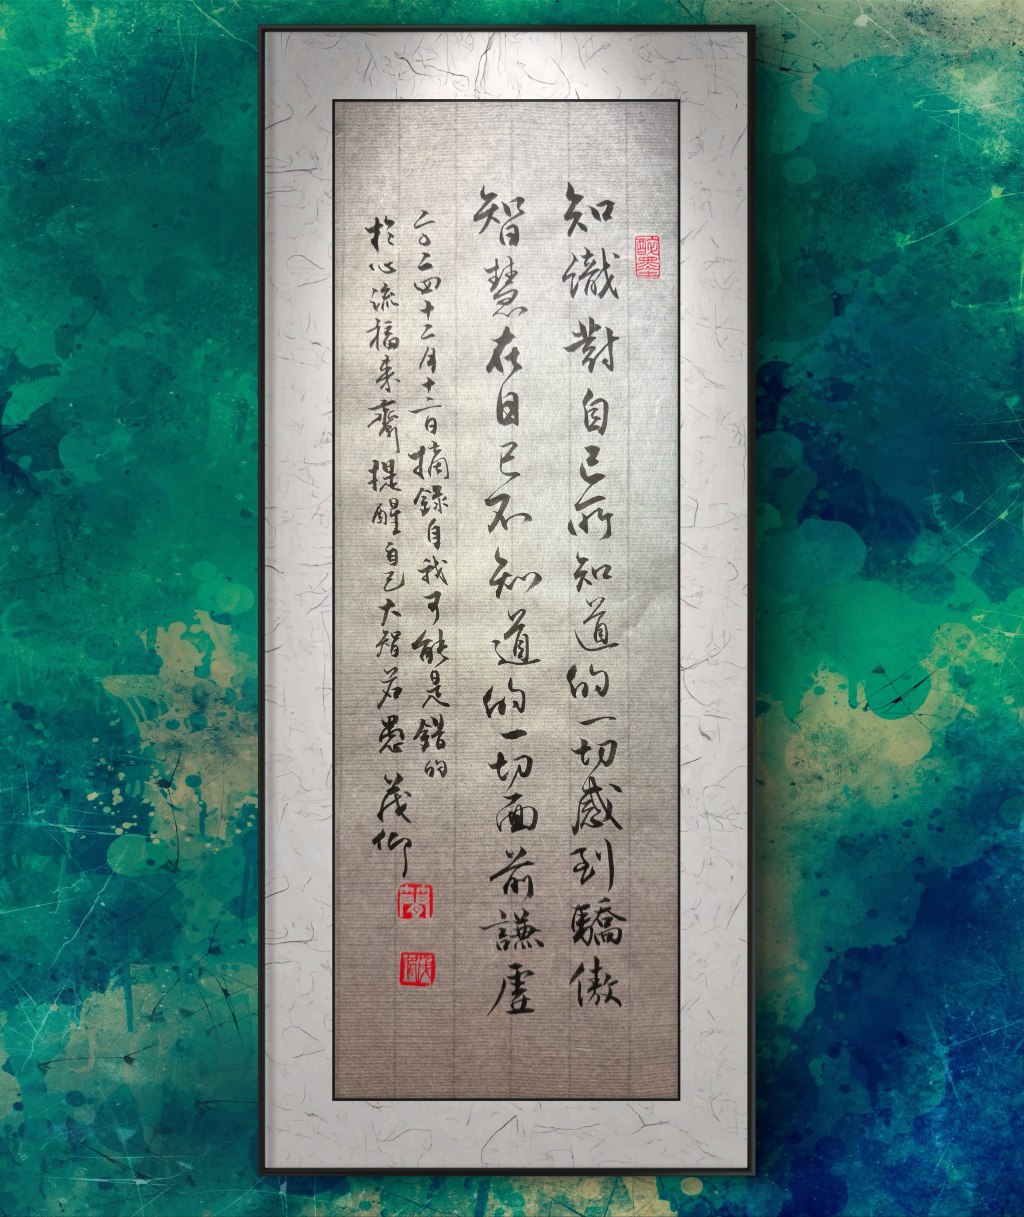 知識對自己所知道的一切感到驕傲
智慧在自己不知道的一切面前謙虛
二〇二四十二月十二日摘錄自我可能是錯的
於心流来齋提醒自己大智若愚 茂仰